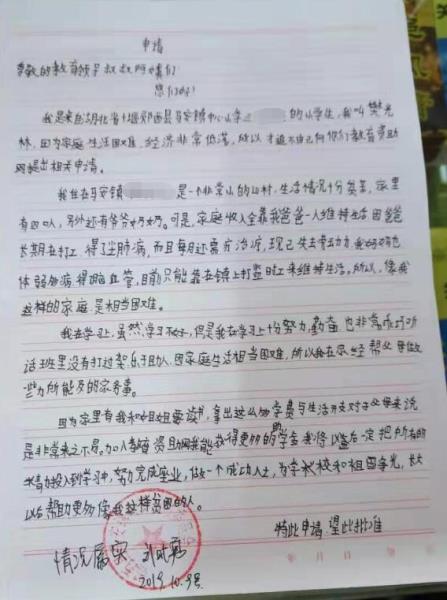 申请
尊敬的教育领导叔叔阿姨们
您们好！
我是来自湖北省十堰郧西县马安镇中心小学 的小学生，我叫樊光
林，因为家庭生活困难，经济非常低落，所以才 你们教育资助
提出相关申请。
我住在马安镇 是一个非常小的山村，生活情况十分差，家里
有四口人，另外还有爷爷奶奶。可是，家庭收入全靠我爸爸一人维持生活因爸爸
长期在打工，得了尘肺病，而且每月还需要治疗，现已失去劳动力，我妈妈也
体弱多病，得脑血管，目前只能靠在镇上打 时工来维持生活。所以，像我
这样的家庭，是相当困难。
我在学习上，虽然学习不好，但是我在学习上十分努力，勤奋，也非常乖巧听
话班里没有打过架，乐于助人，因家庭生活相当困难，所以我在家经 帮父母做
些力所能及的家务事。
因为家里有我和姐姐要读书，拿出这么多学费与生活开支对于父母来说
是非常来之不易。加入教育资助网我能获得更多的助学金，我将以后一定把所有的
精力投入到学习中，努力完成学业，做一个成功人士，为学校和祖国争光，长大
以后帮助更多像我这样贫困的人。
特此申请，望批准
情况属实
年 月 日
2019.10.9号